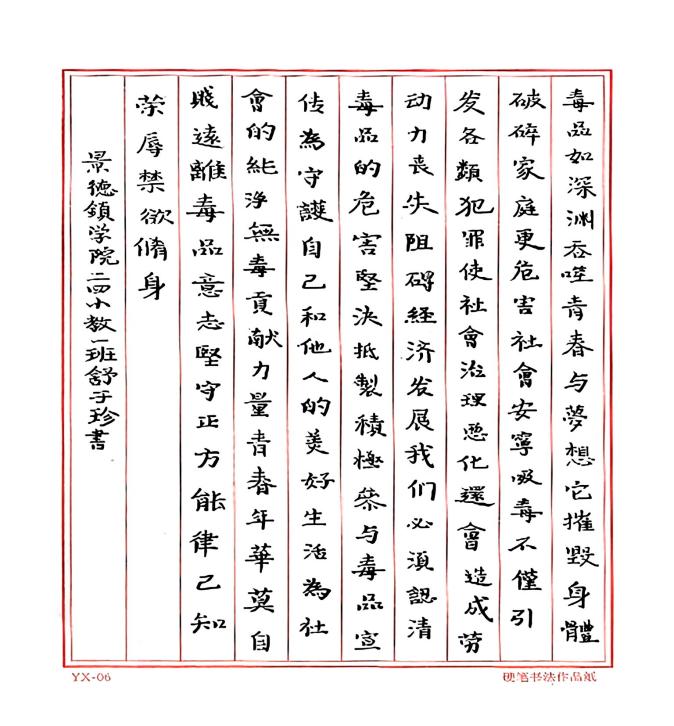 毒品如深渊吞噬青春与夢想它摧毀身體
破碎家庭更危害社會安寧吸毒不僅引
发各類犯罪使社會治理惡化還會造成劳
动力丧失阻碍經济发展我们必須認清
毒品的危害堅決抵製積極参与毒品宣
传為守護自己和他人的美好生活為社
會的純浄無毒貢献力量青春年華莫自
賤遠離毒品意志堅守正方能律己知
荣辱禁欲脩身
景德鎮学院二四小教一班舒子珍書
YX-06
硬笔书法作品纸